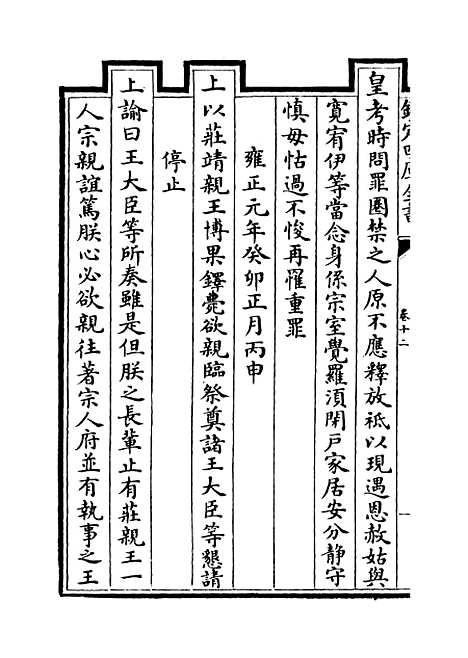 欽定四庫全書
卷十二
皇考時問罪圈禁之人原不應釋放祗以現遇恩赦姑與
寬宥伊等當念身係宗室覺羅須閉戶家居安分靜守
慎毋怙過不悛再罹重罪
雍正元年癸卯正月丙申
上以莊靖親王博果鐸薨欲親臨祭奠諸王大臣等懇請
停止
上諭曰王大臣等所奏雖是但朕之長輩止有莊親王一
人宗親誼篤朕心必欲親往著宗人府並有執事之王